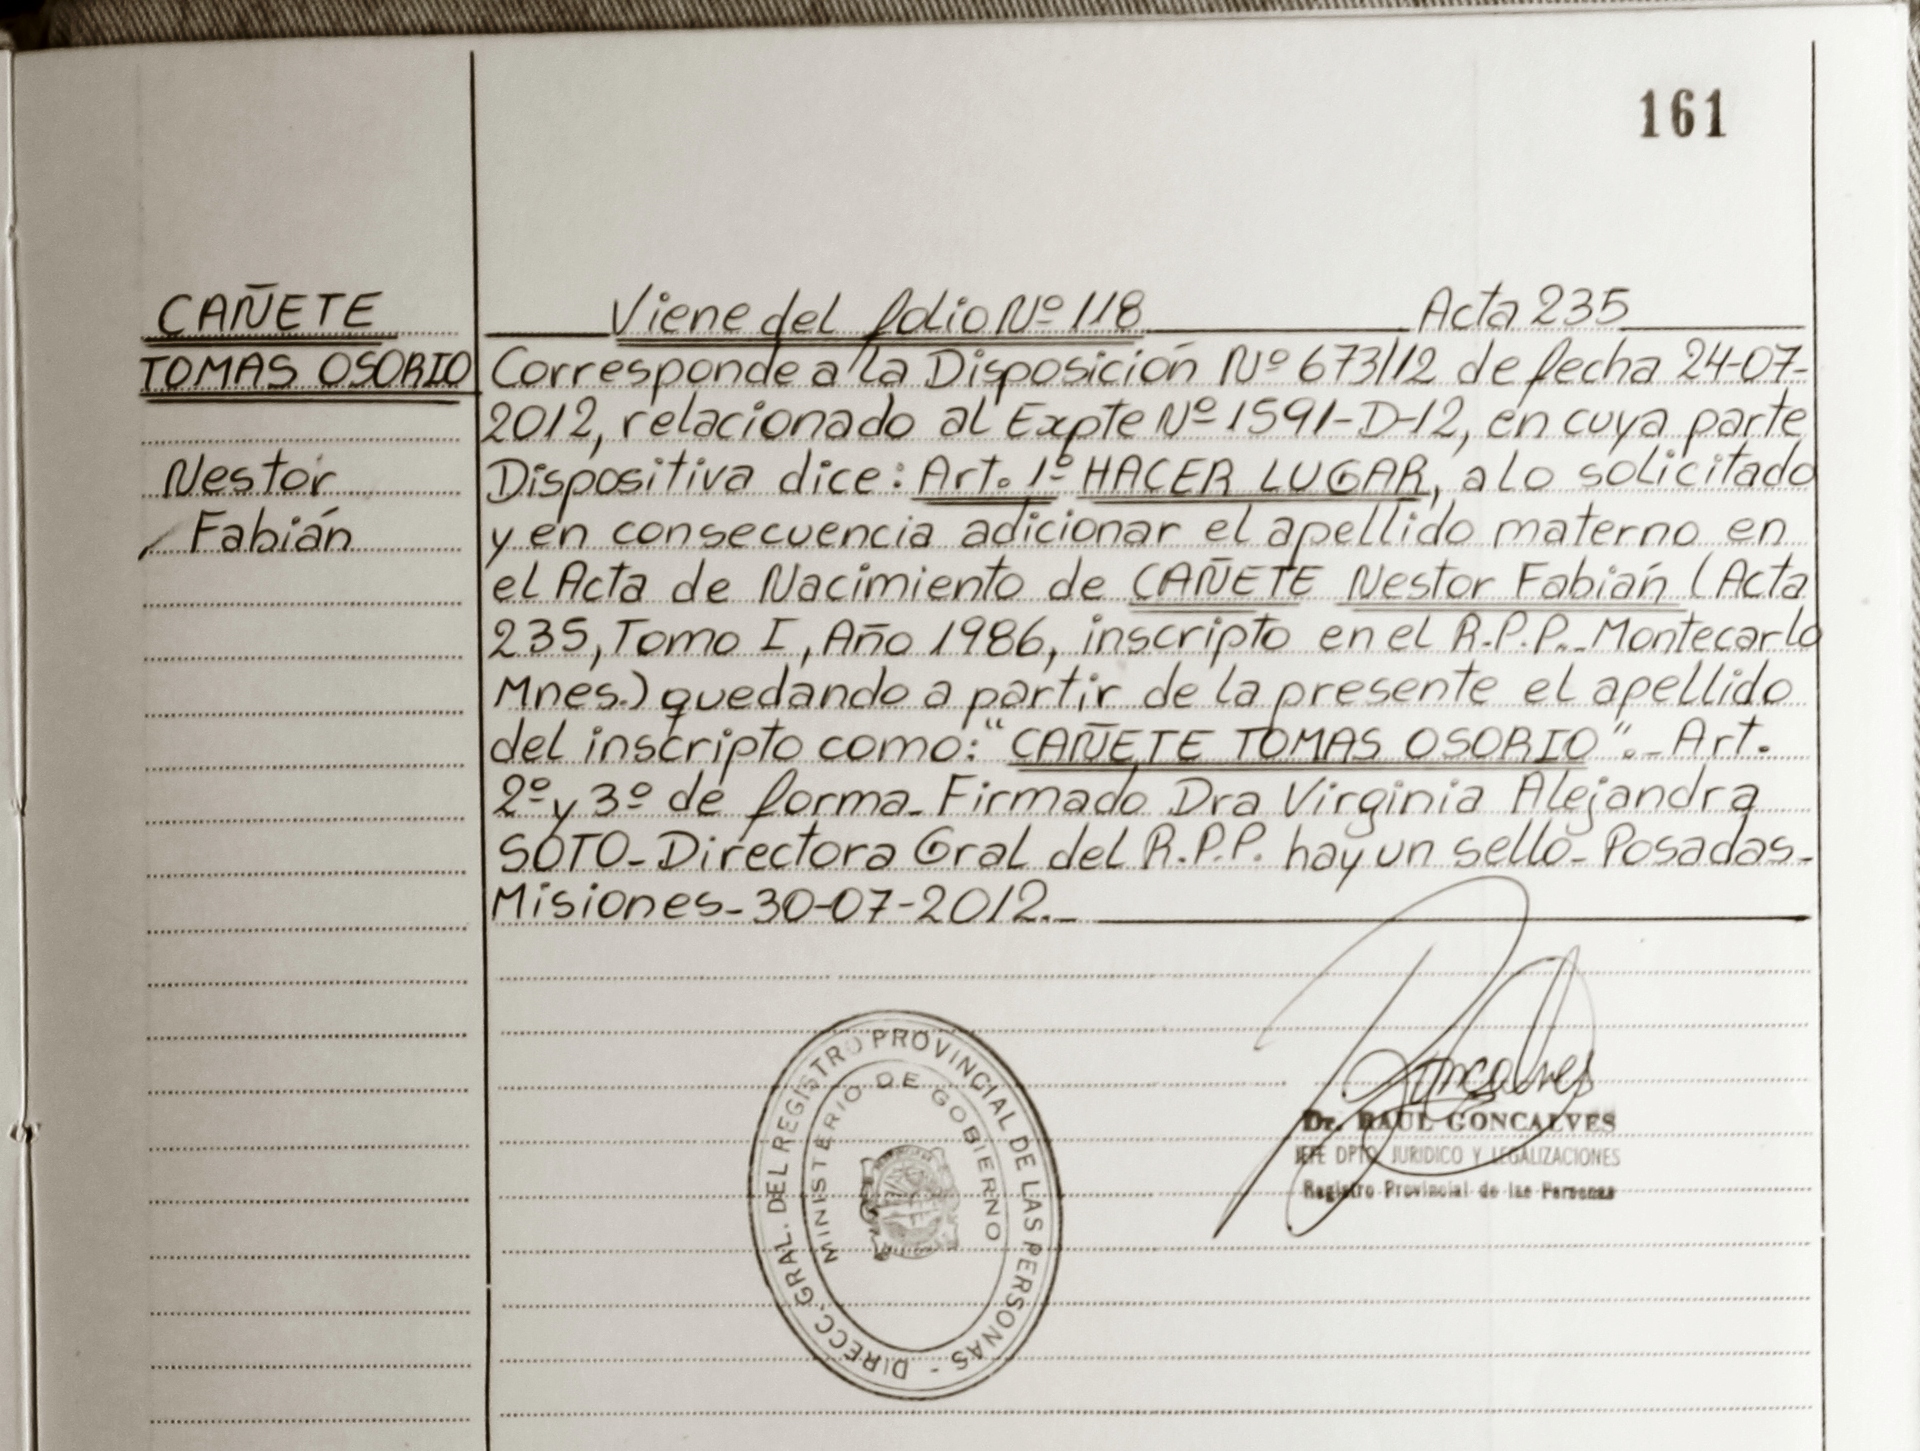 161
CAÑETE
TOMAS OSORIO
Nestor
Fabián
Viene del folio Nº 118 Acta 235
Corresponde a la Disposición Nº 673/12 de fecha 24-07-
2012, relacionado al Expte Nº 1591-D-12, en cuya parte
Dispositiva dice: Art. 1º HACER LUGAR, a lo solicitado
y en consecuencia adicionar el apellido materno en
el Acta de Nacimiento de CAÑETE Nestor Fabián (Acta
235, Tomo I, Año 1986, inscripto en el R.P.P.- Montecarlo
Mnes.) quedando a partir de la presente el apellido
del inscripto como: "CAÑETE TOMAS OSORIO".- Art.
2º y 3º de forma- Firmado Dra Virginia Alejandra
SOTO- Directora Gral del R.P.P. hay un sello- Posadas-
Misiones- 30-07-2012.-
DIRECC. GRAL. DEL REGISTRO PROVINCIAL DE LAS PERSONAS -
MINISTERIO DE GOBIERNO
Goncalves
Dr. RAUL GONCALVES
JEFE DPTO JURIDICO Y LEGALIZACIONES
Registro Provincial de las Personas